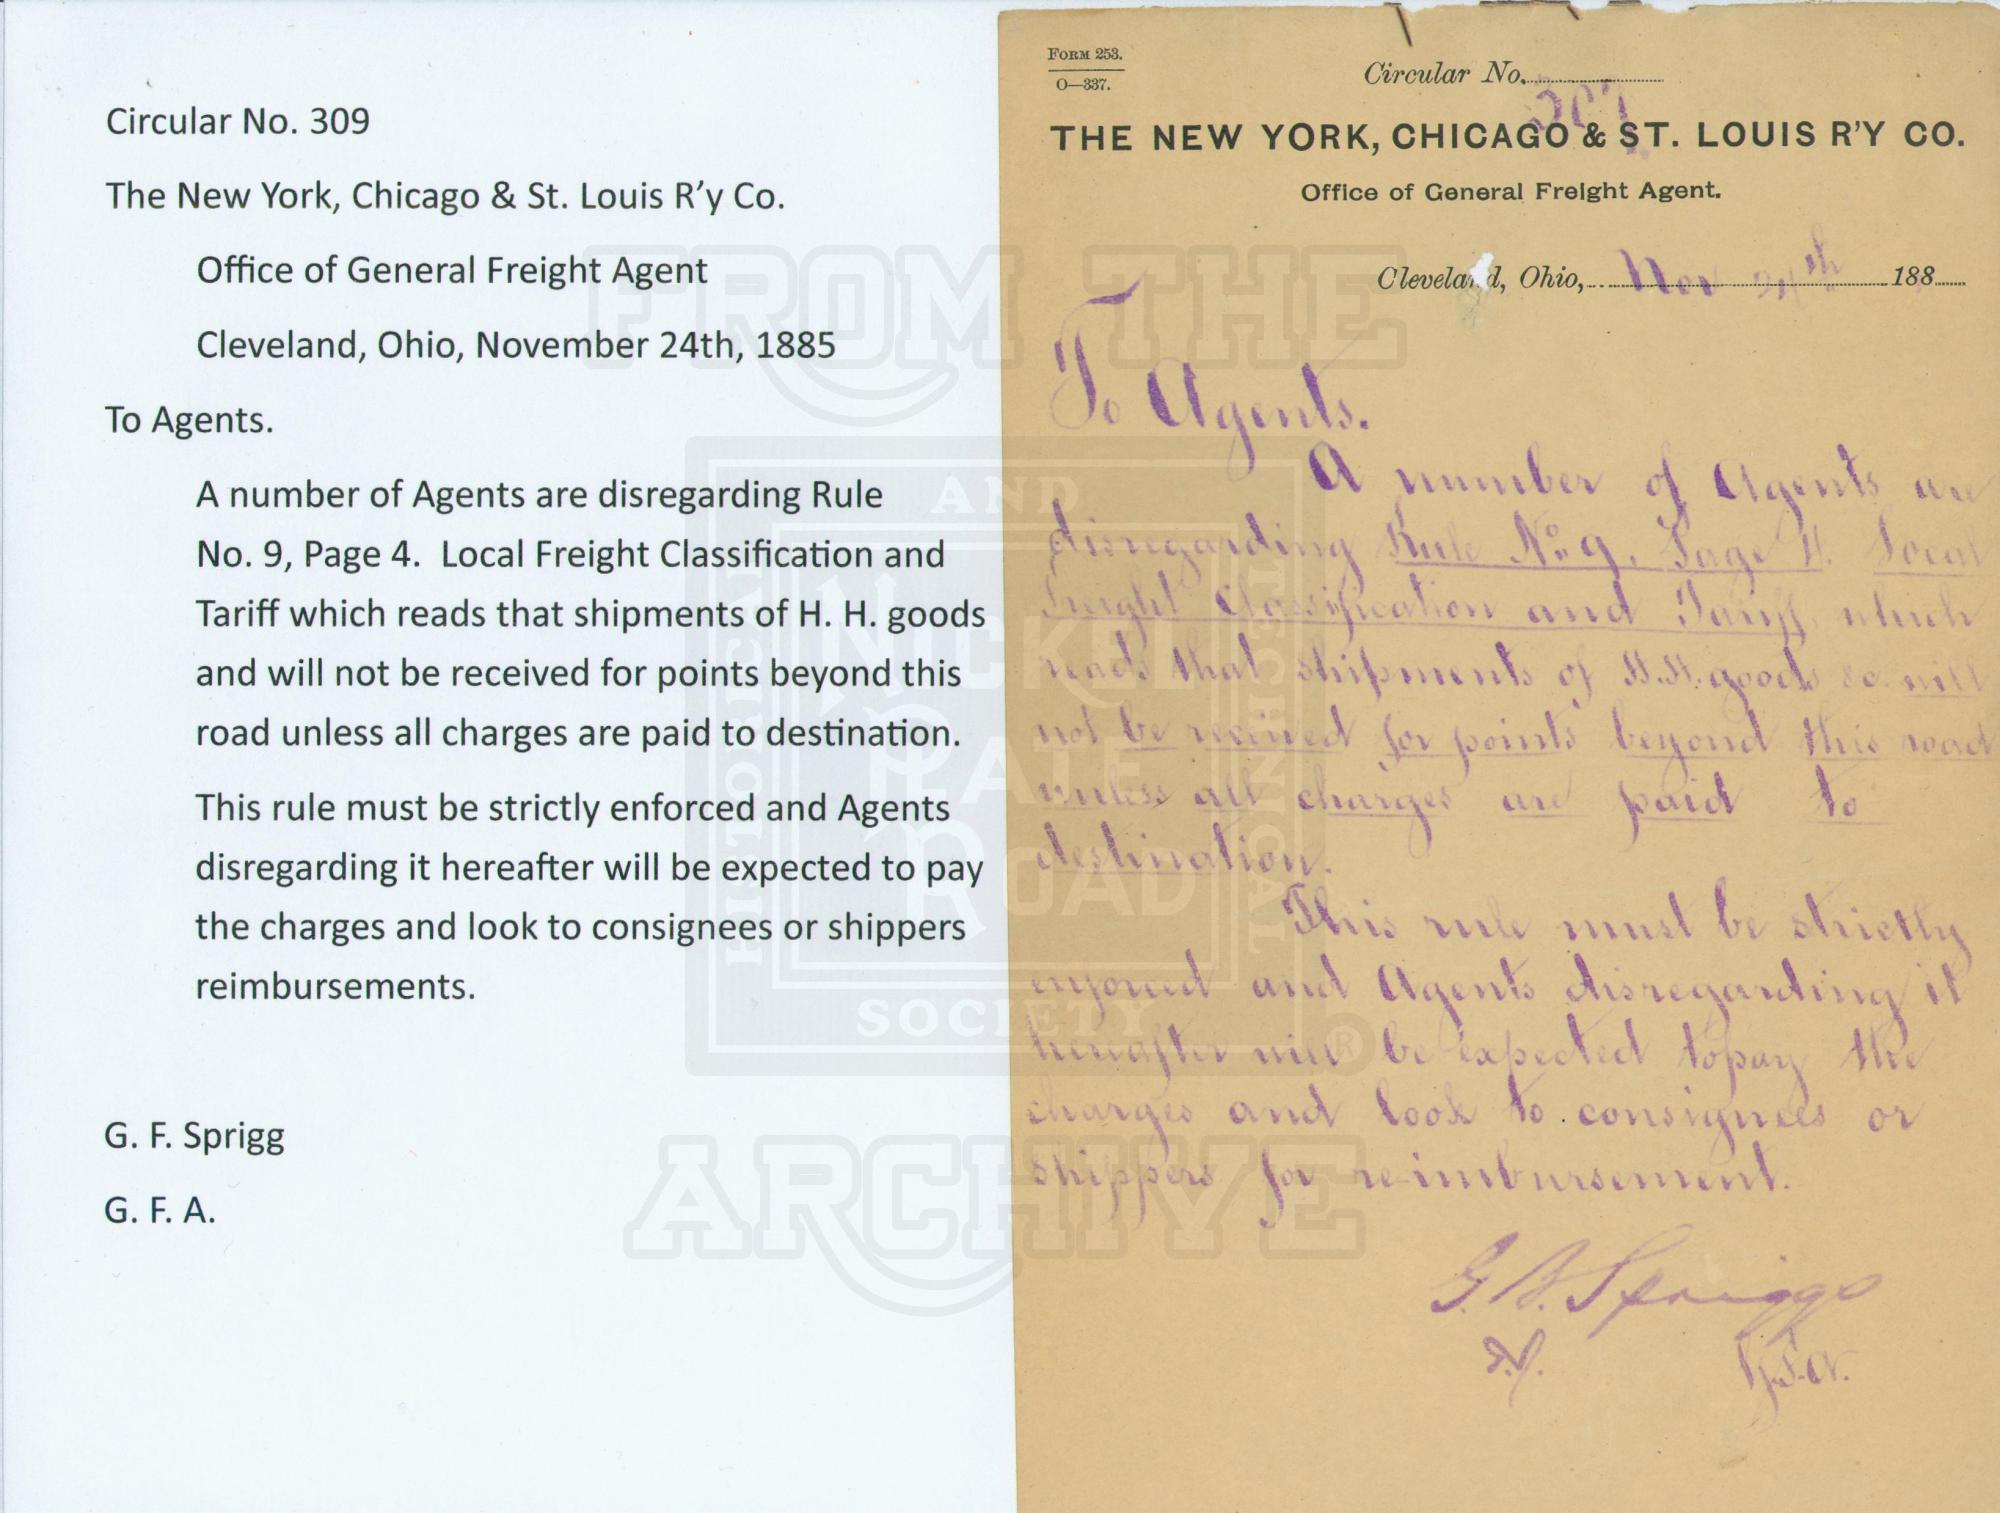 Circular No. 309
The New York, Chicago & St. Louis R'y Co.
Office of General Freight Agent
Cleveland, Ohio, November 24th, 1885
To Agents.
A number of Agents are disregarding Rule
No. 9, Page 4.  Local Freight Classification and
Tariff which reads that shipments of H. H. goods
and will not be received for points beyond this
road unless all charges are paid to destination.
This rule must be strictly enforced and Agents
disregarding it hereafter will be expected to pay
the charges and look to consignees or shippers
reimbursements.
G. F. Sprigg
G. F. A.
FORM 253.
O—337.
Circular No.
THE NEW YORK, CHICAGO & ST. LOUIS R'Y CO.
Office of General Freight Agent.
Cleveland, Ohio, Nov 24th 188
To Agents.
A number of Agents are
disregarding Rule No. 9. Page 4. Local
Freight Classification and Tariff, which
reads that shipments of H.H. goods &c. will
not be received for points beyond this road
unless all charges are paid to
destination.
This rule must be strictly
enforced and Agents disregarding it
hereafter will be expected to pay the
charges and look to consignees or
shippers for re-imbursement.
G. B. Spriggs
G.F.A.
FROM THE
NICKEL
PLATE
ROAD
HISTORICAL
AND
TECHNICAL
SOCIETY
®
ARCHIVE